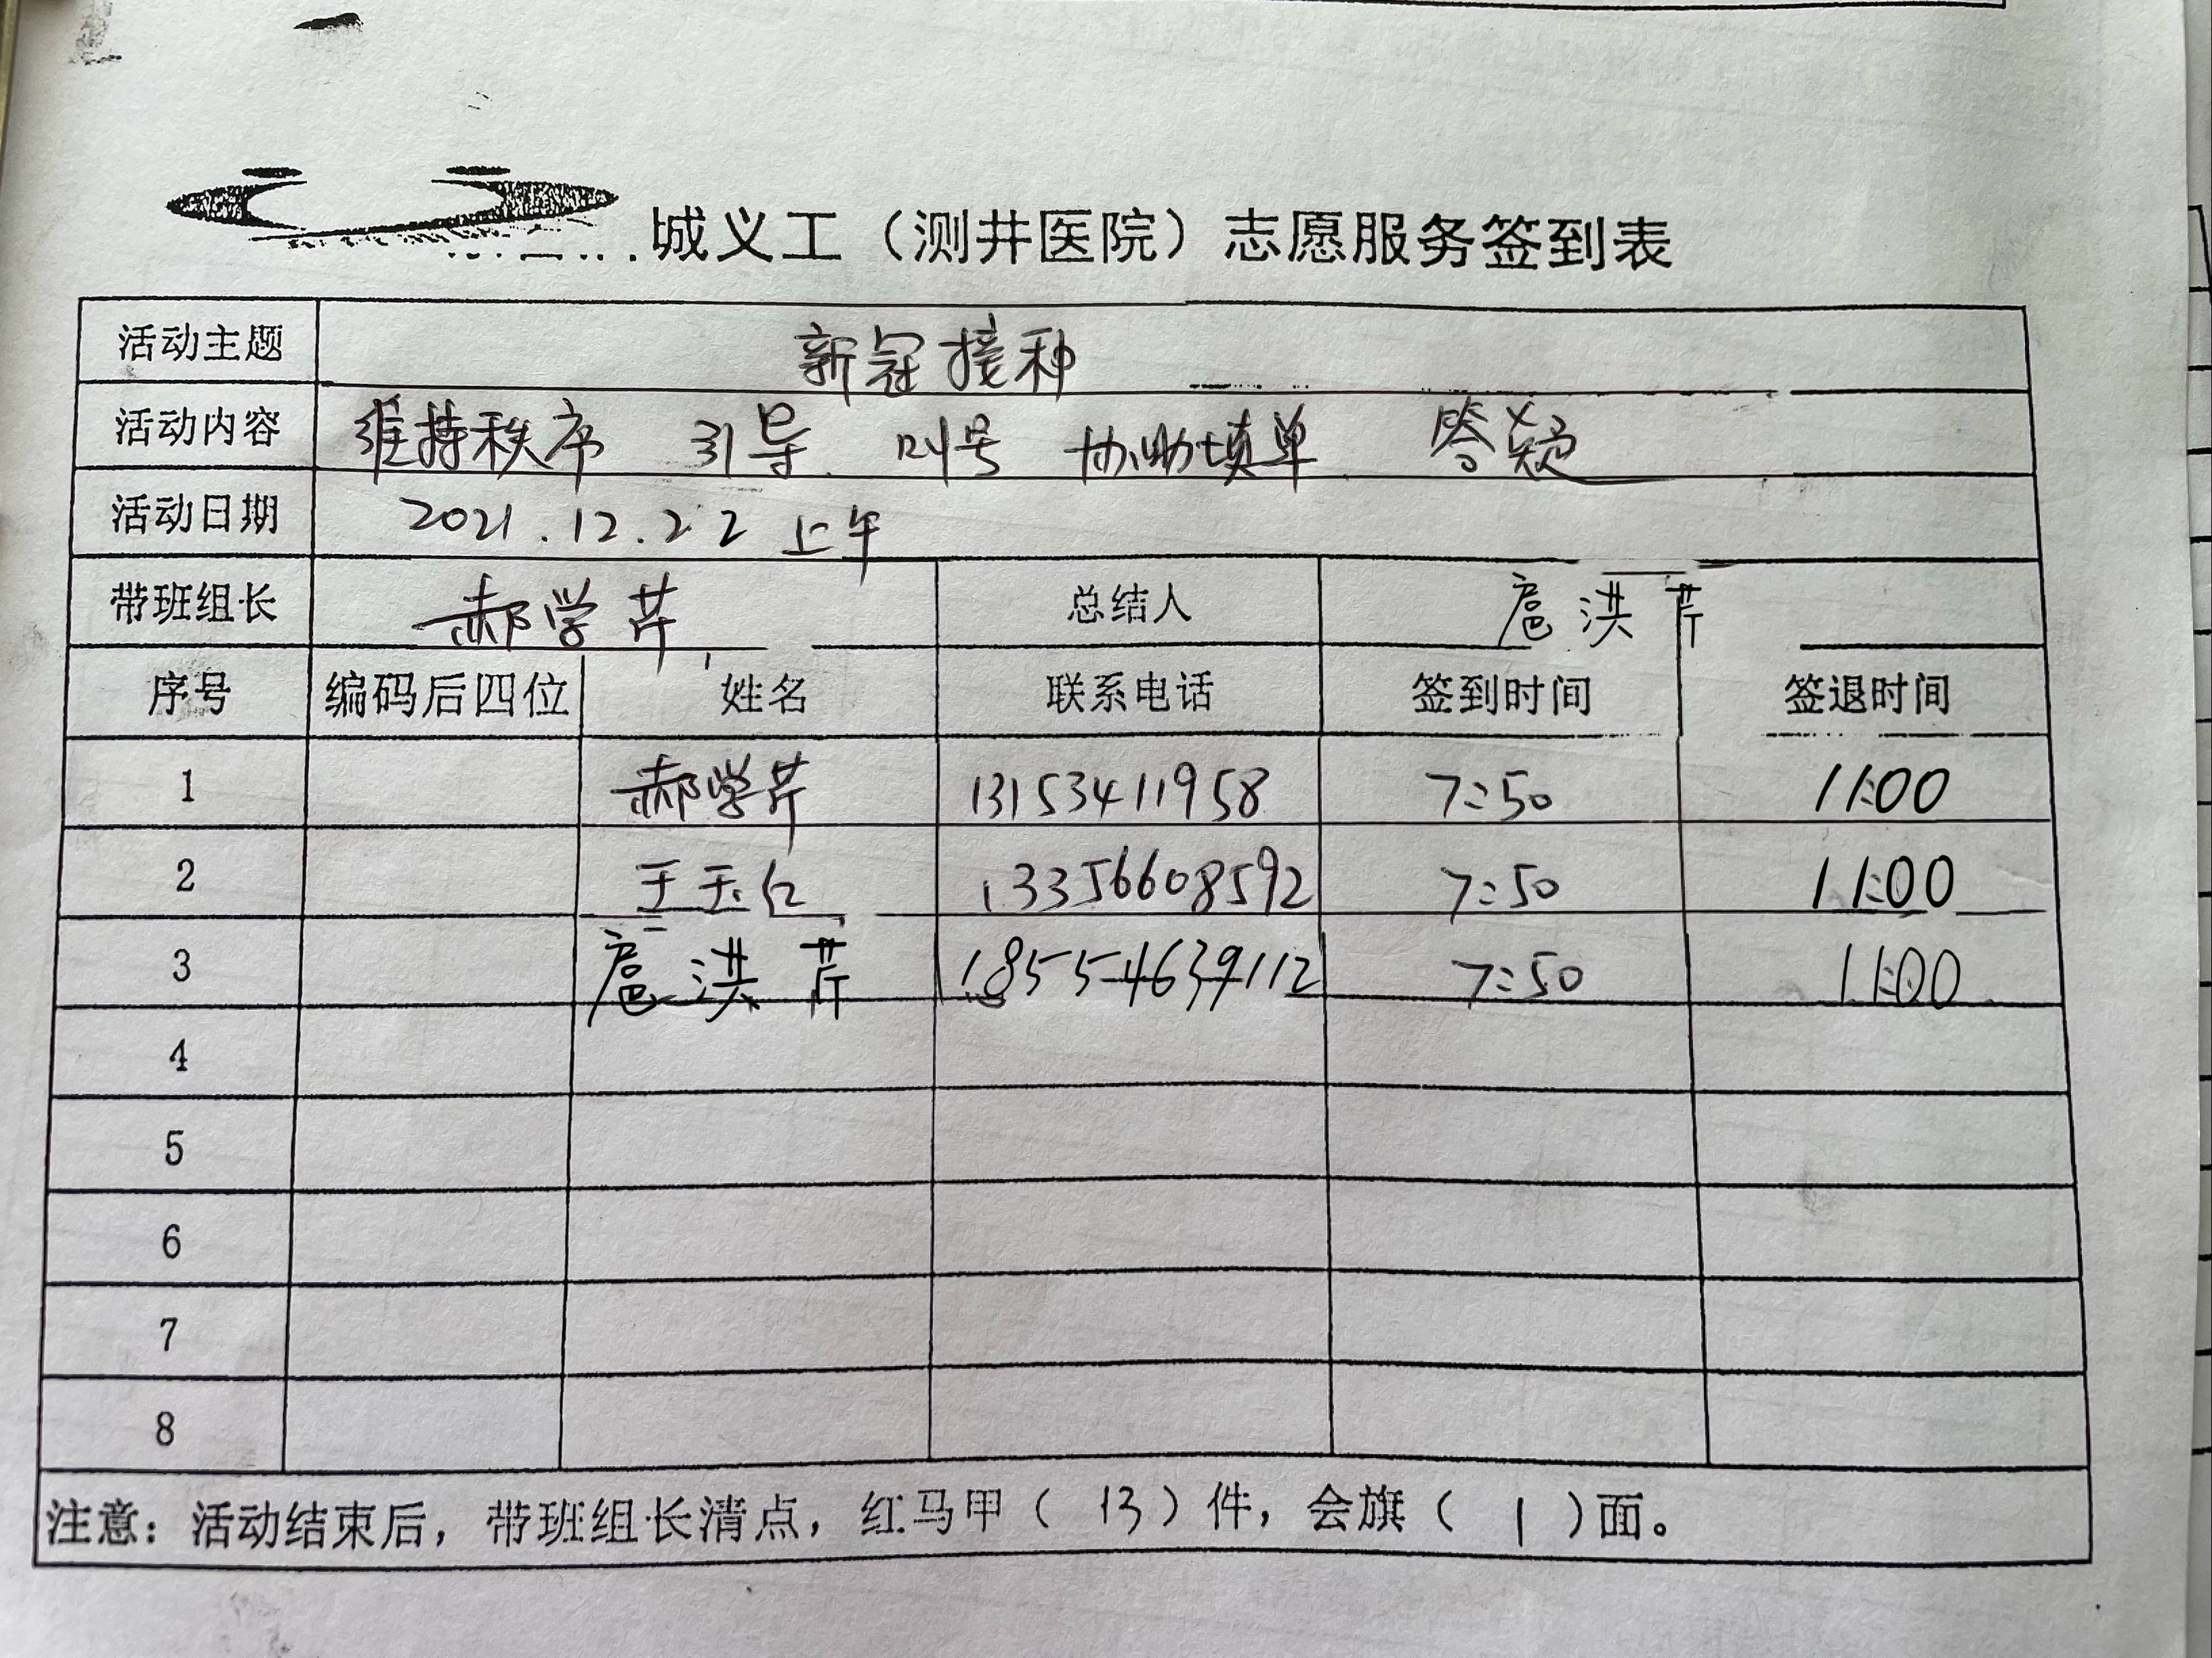 城义工（测井医院）志愿服务签到表
活动主题 新冠接种
活动内容 维持秩序 引导 叫号 协助填单 答疑
活动日期 2021.12.22 上午
带班组长 郝学芹 总结人 扈洪芹
序号 编码后四位 姓名 联系电话 签到时间 签退时间
1 郝学芹 13153411958 7:50 11:00
2 王玉仁 13356608592 7:50 11:00
3 扈洪芹 18554639112 7:50 11:00
4
5
6
7
8
注意：活动结束后，带班组长清点，红马甲（13）件，会旗（1）面。